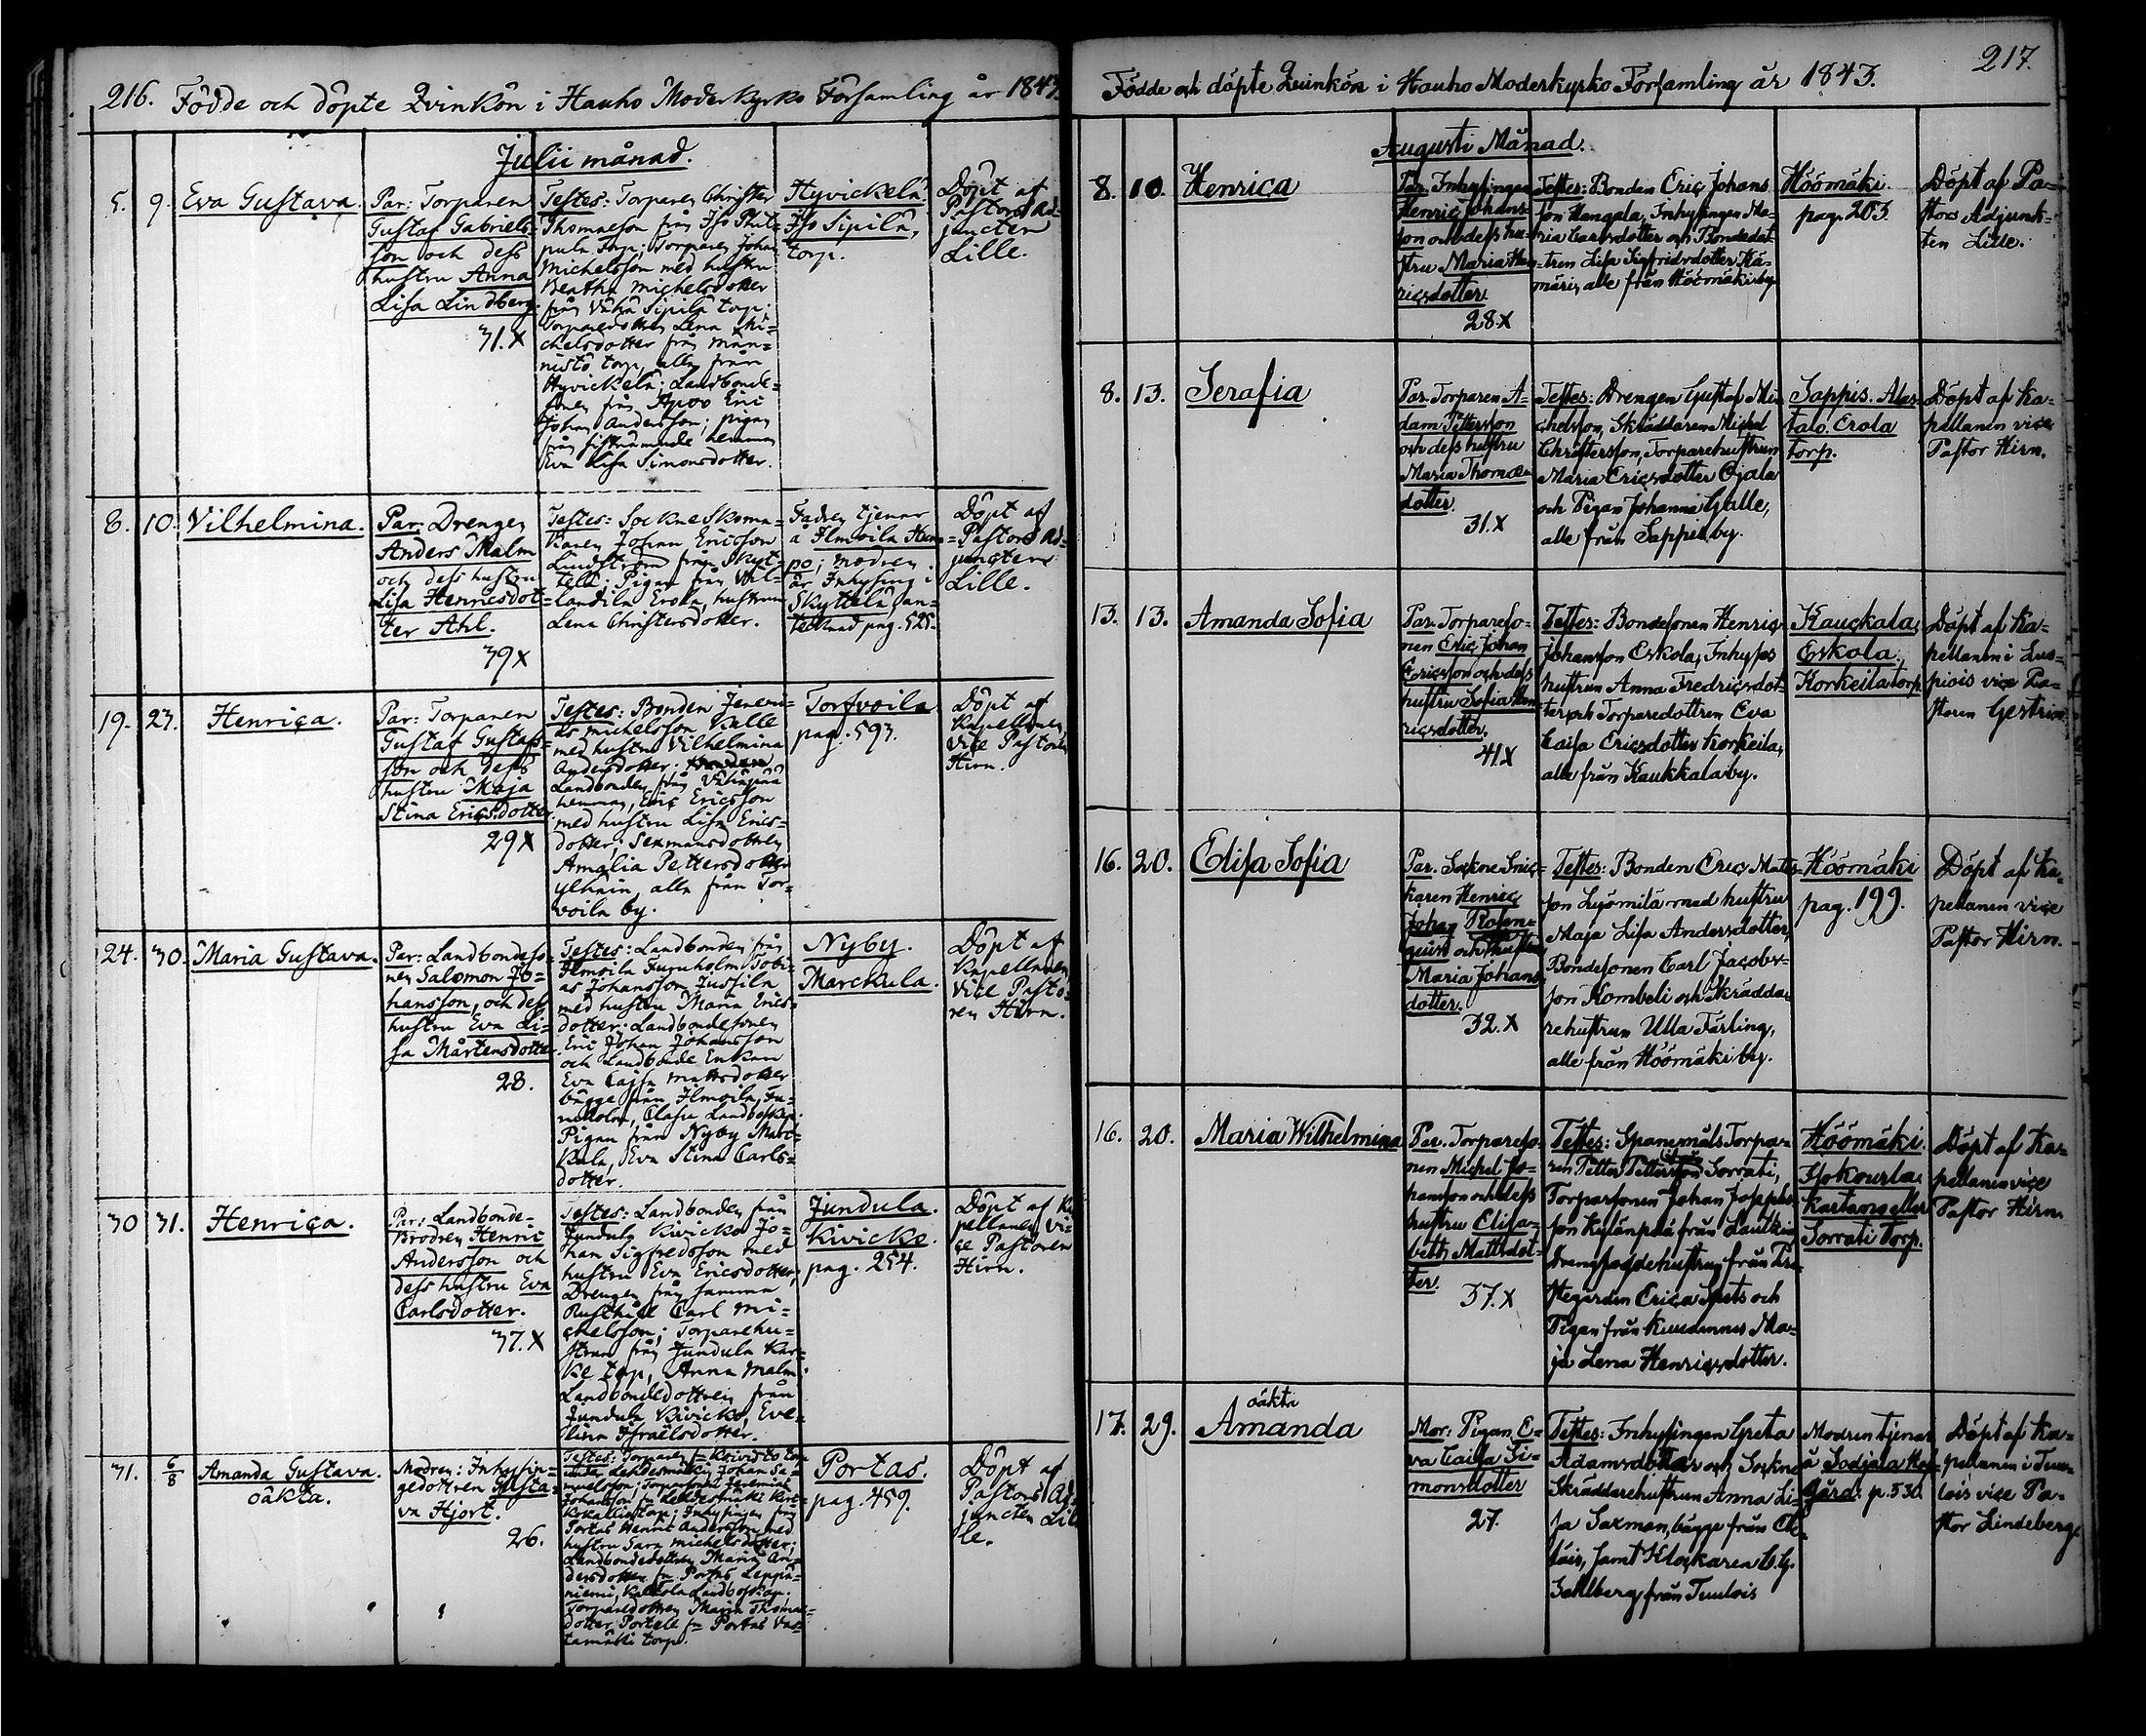 216. Födde och döpte Qvinkön i Hauho Moderkyrko Församling år 1843.
Julii månad.
5. 9. Eva Gustava.
Par: Torparen
Gustaf Gabriels-
son och dess
hustru Anna
Lisa Lindberg.
31. X
Testes: Torparen Christer
Thomasson från Iso
torp; Torparen Johan
Michelsson med hustru
Beatha Michelsdotter
från Vähä Sipilä torp;
Torparedottren Lena Mi-
chelsdotter från Män-
nistö torp, alla från
Hyvickelä; Landbonde-
sonen från Eric
Johan Andersson; pigan
från hemman
Eva Lisa Simonsdotter.
Hyvickelä.
Iso Sipilä,
torp.
Döpt af
Pastors Ad-
juncten
Lille.
8. 10. Vilhelmina.
Par: Drengen
Anders Malm
och dess hustru
Lisa Henricsdot-
ter Ahl.
39 X
Testes: Sockneskoma-
karen Johan Ericsson
Lindström från Skyt-
telä; Pigan från
Erola, hustrun
Lena Christersdotter.
Fadren tjenar
å Ilmoila Hem-
po; modren
är Inhysing i
Skyttelä, an-
tecknad pag. 525.
Döpt af
Pastors Ad-
juncten
Lille.
19. 23. Henrica.
Par: Torparen
Gustaf Gustafs-
son och dess
hustru Maja
Stina Ericsdotter
29 X
Testes: Bonden Jeremi-
as Michelsson Kalle
med hustru Vilhelmina
Andersdotter;
Landbonden från
hemman, Eric Ericsson
med hustru Lisa Erics-
dotter; Sexmansdottren
Amalia Pettersdotter
alla från Tor-
voila by.
Torfvoila
pag. 593.
Döpt af
Kapellanen
Vice Pastoren
Hirn.
24. 30. Maria Gustava.
Par: Landbondeso-
nen Salomon Jo-
hansson, och dess
hustru Eva Li-
sa Mårtensdotter
28.
Testes: Landbonden från
Ilmoila Furuholm Tobi-
as Johansson Jussila
med hustru Maria Erics-
dotter; Landbondesonen
Eric Johan Johansson
och Landbonde Enkan
Eva Cajsa Mattsdotter
bägge från Ilmoila, Fu-
ruholm,
Pigan från Nyby Marc-
kula, Eva Stina Carls-
dotter.
Nyby.
Marckula.
Döpt af
Kapellanen
Vice Pasto-
ren Hirn.
30 31. Henrica.
Par: Landbonde-
Brodren Henric
Andersson och
dess hustru Eva
Carlsdotter.
37. X
Testes: Landbonden från
Jundula Kivicko Jo-
han Sigfredsson med
hustru Eva Ericsdotter,
Drengen från samma
Rusthåll Carl Mi-
chelsson; Torparehu-
strun från Jundula Kar-
ke torp, Anna Malm
Landbondedottren från
Jundula Kivicko, Eve-
lina Israelsdotter.
Jundula.
Kivicko.
pag. 254.
Döpt af Ka
pellanen vi-
ce Pastoren
Hirn.
31. 6/8 Amanda Gustava.
oäkta.
Modren: Inhysin-
gedottren Gusta-
va Hjort.
26.
Testes: Torparen
Johan Sa-
muelsson; Jeremias
Johansson
torp; Inhysingen från
Portas Henric Andersson med
hustru Sara Michelsdotter;
Landbondedottren Maria An-
dersdotter fr. Portas
Torparedottren Maria Thomas-
dotter fr. Portas
torp.
Portas.
pag. 459.
Döpt af
Pastors Ad-
juncten Lil
le.
217.
Födde och döpte Qvinkön i Hauho Moderkyrko Församling år 1843.
Augusti Månad.
8. 10. Henrica
Par. Inhysingen
Henric Johans-
son och dess hu-
stru Maria Hen-
ricsdotter.
28. X
Testes: Bonden Eric Johans
son Hangala, Inhysingen Ma-
ria Carlsdotter och Bondedot-
tren Lisa Sigfridsdotter
alle från Höömäki by
Höömäki.
pag. 203.
Döpt af Pa-
stors Adjunk-
ten Lille.
8. 13. Serafia
Par. Torparen A-
dam Pettersson
och dess hustru
Maria Thomæ-
dotter.
31. X
Testes: Drengen Gustaf Mi-
chelsson, Skräddaren Michel
Christersson, Torparehustrun
Maria Ericsdotter Ojala
och Pigan Johanna Galle,
alle från Sappis by.
Sappis. Alas-
talo. Erola
torp.
Döpt af Ka-
pellanen vice
Pastor Hirn.
13. 13. Amanda Sofia
Par. Torpareso-
nen Eric Johan
Ericsson och dess
hustru Sofia Hen-
ricsdotter.
41 X
Testes: Bondesonen Henric
Johansson Eskola, Inhyses
hustrun Anna Fredricsdot-
ter och Torparedottren Eva
Caisa Ericsdotter Korkeila,
alle från Kaukkala by.
Kauckala,
Eskola,
Korkeila torp
Döpt af Ka-
pellanen i Luo-
piois vice Pa-
storen Gestrin.
16. 20. Elisa Sofia
Par. Sockne Snic-
karen Henric
Johan Rosen-
quist och hustru
Maria Johans
dotter.
32. X
Testes: Bonden Eric Matts-
son Lyömilä med hustru
Maja Lisa Andersdotter,
Bondesonen Carl Jacobs-
son Kombeli och Skrädda-
rehustrun Ulla Färling,
alle från Höömäki by.
Höömäki
pag. 199.
Döpt af Ka-
pellanen vice
Pastor Hirn.
16. 20. Maria Wilhelmina
Par. Torpareso-
nen Michel Jo-
hansson och dess
hustru Elisa-
beth Mattsdot-
ter.
37. X
Testes: Spanemåls Torpa-
ren Petter Pettersson Sorrati,
Torparsonen Johan Josephs-
son Kylänpää från
hustrun från Pre-
stegården Erica Spets och
Pigan från Ma-
ja Lena Henricsdotter.
Höömäki.
Kartano eller
Sorrati Torp.
Döpt af Ka-
pellanen vice
Pastor Hirn.
17. 29. oäkta
Amanda
Mor: Pigan E-
va Caisa Si-
monsdotter
27.
Testes: Inhysingen Greta
Adamsdotter och Sockne
Skräddarehustrun Anna Li-
sa Saxman, bägge från
samt Klockaren C. G.
Sahlberg från Tuulois
Modren tjenar
å
gård: p. 530.
Döpt af Ka-
pellanen i Tuu-
lois vice Pa-
stor Lindeberg.